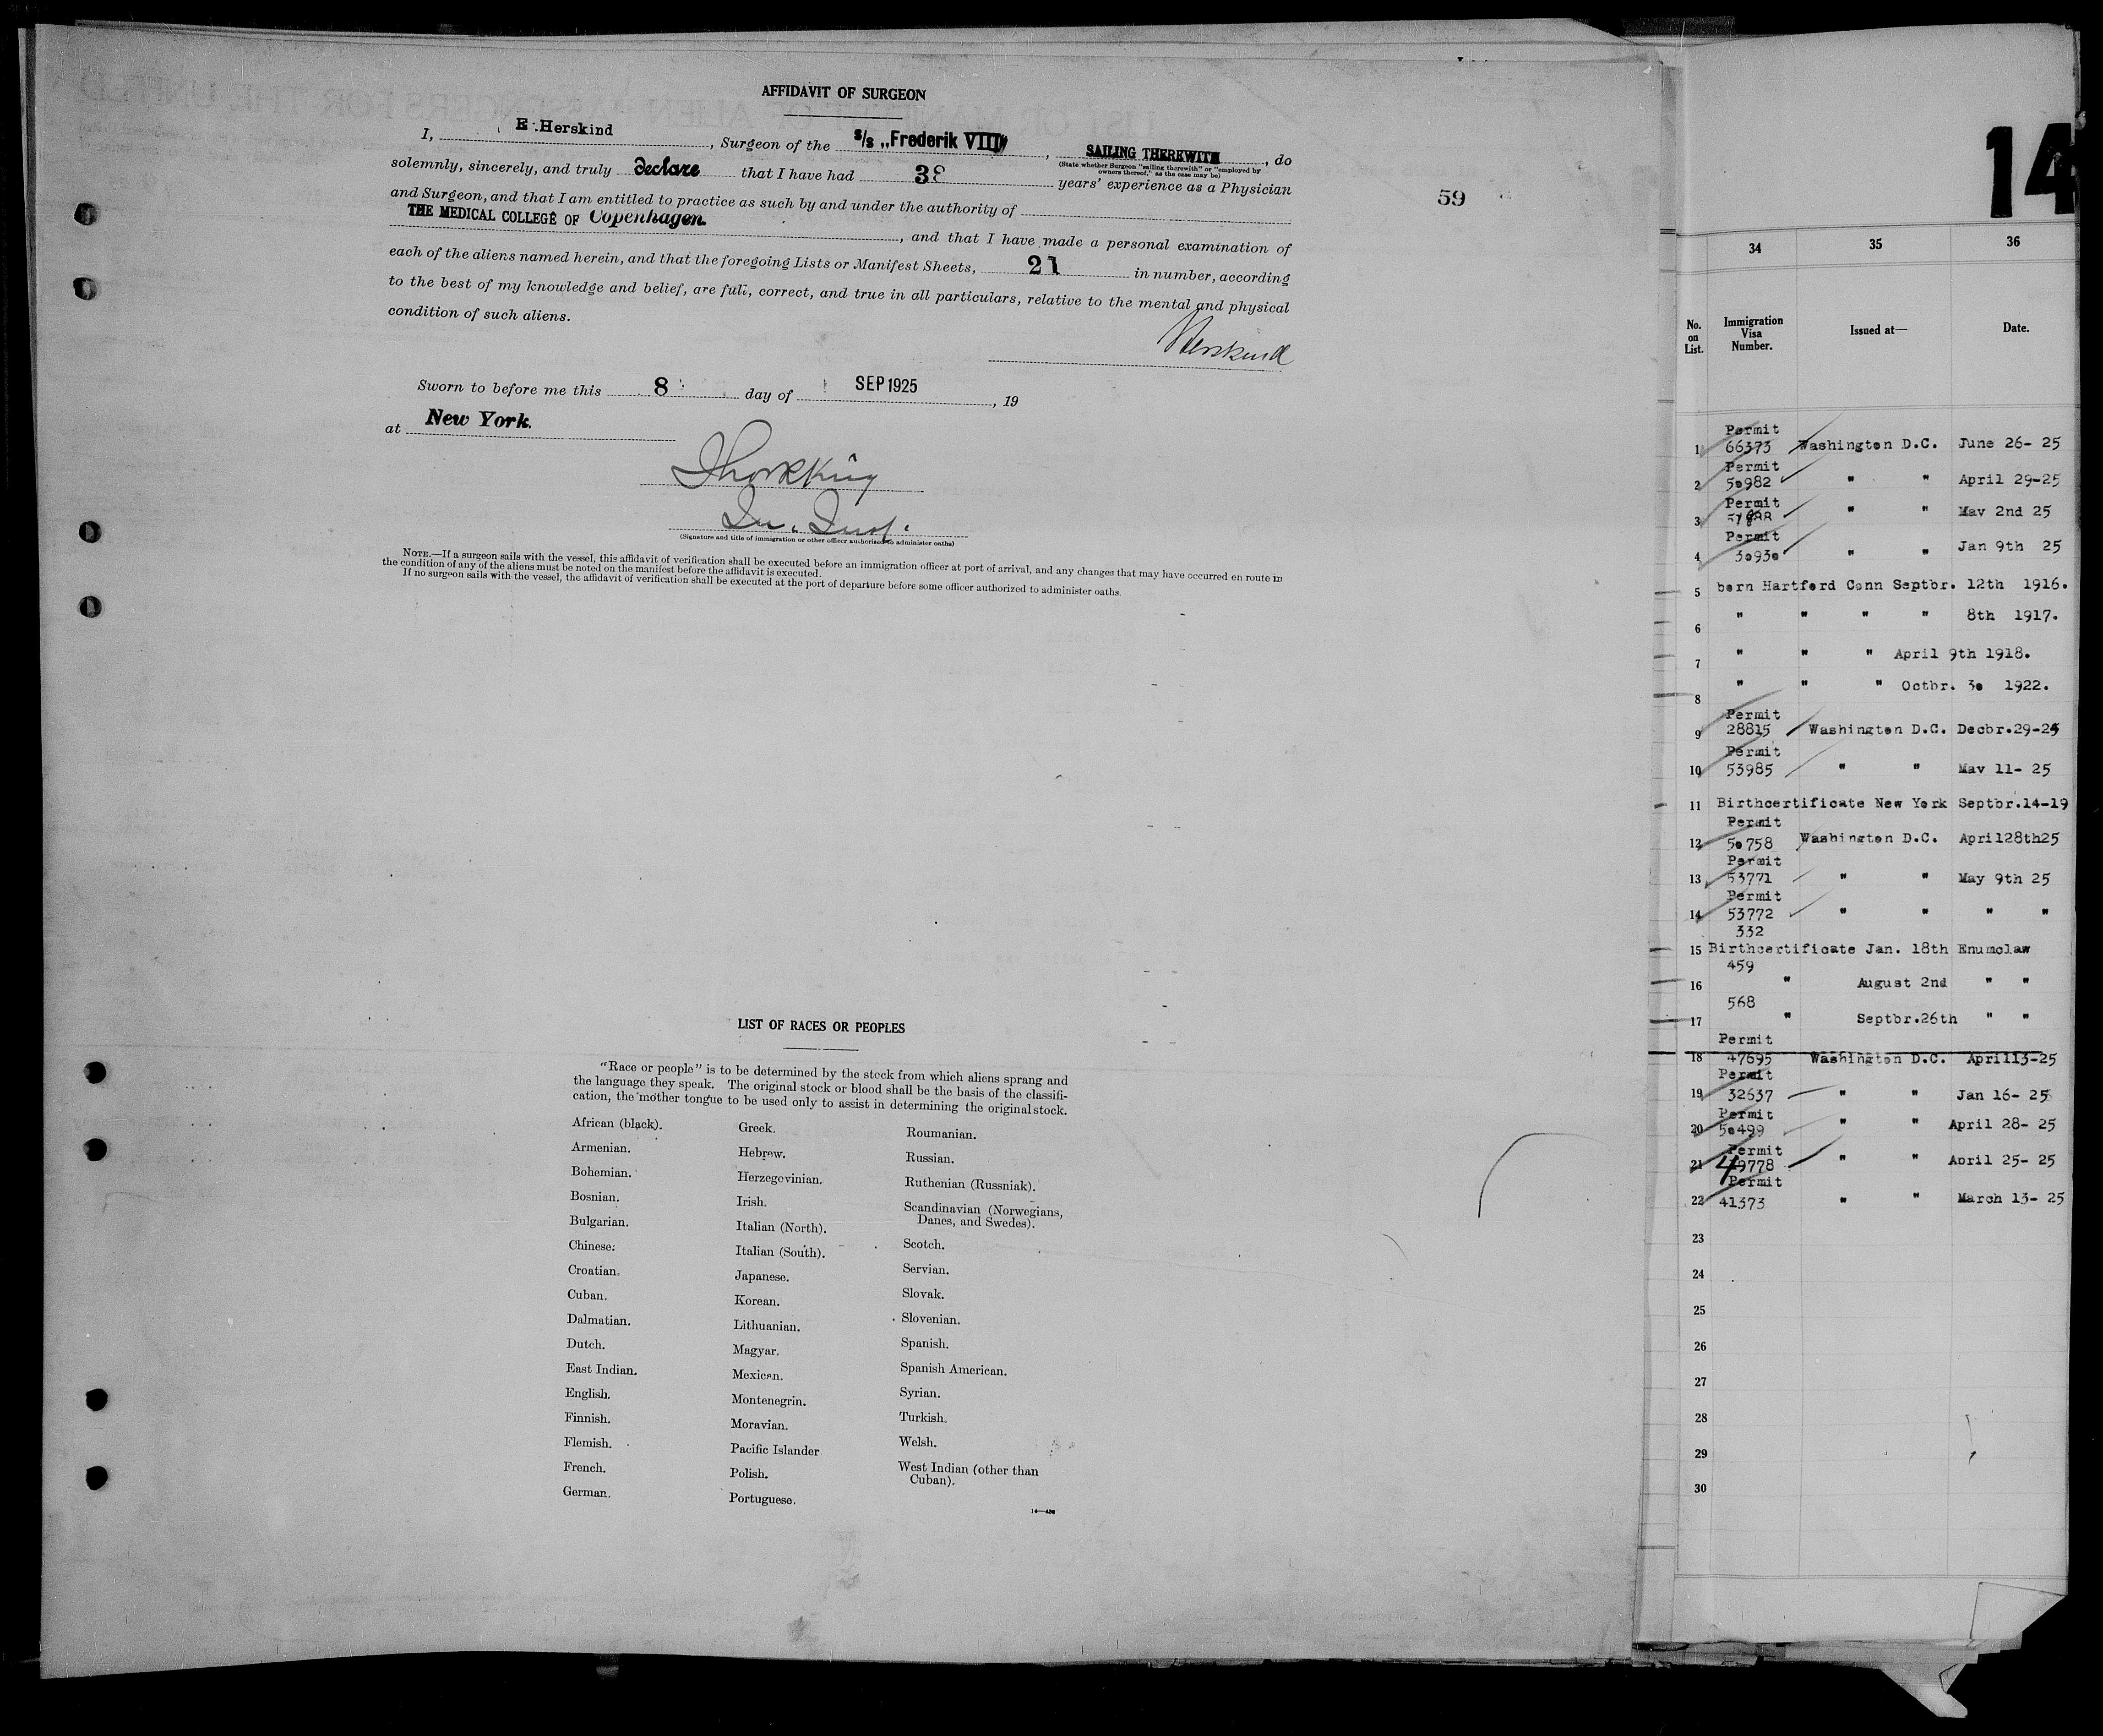 AFFIDAVIT OF SURGEON
I, E. Herskind, Surgeon of the s/s „Frederik VIII", SAILING THEREWITH, do
(State whether Surgeon "sailing therewith" or "employed by owners thereof," as the case may be)
solemnly, sincerely, and truly declare that I have had 38 years' experience as a Physician
and Surgeon, and that I am entitled to practice as such by and under the authority of
THE MEDICAL COLLEGE OF Copenhagen, and that I have made a personal examination of
each of the aliens named herein, and that the foregoing Lists or Manifest Sheets, 21 in number, according
to the best of my knowledge and belief, are full, correct, and true in all particulars, relative to the mental and physical
condition of such aliens.
Herskind
Sworn to before me this 8 day of SEP 1925, 19
at New York.
(Signature and title of immigration or other officer authorized to administer oaths)
NOTE.—If a surgeon sails with the vessel, this affidavit of verification shall be executed before an immigration officer at port of arrival, and any changes that may have occurred en route in
the condition of any of the aliens must be noted on the manifest before the affidavit is executed.
If no surgeon sails with the vessel, the affidavit of verification shall be executed at the port of departure before some officer authorized to administer oaths.
59
LIST OF RACES OR PEOPLES
"Race or people" is to be determined by the stock from which aliens sprang and
the language they speak. The original stock or blood shall be the basis of the classifi-
cation, the mother tongue to be used only to assist in determining the original stock.
African (black).
Armenian.
Bohemian.
Bosnian.
Bulgarian.
Chinese.
Croatian.
Cuban.
Dalmatian.
Dutch.
East Indian.
English.
Finnish.
Flemish.
French.
German.
Greek.
Hebrew.
Herzegovinian.
Irish.
Italian (North).
Italian (South).
Japanese.
Korean.
Lithuanian.
Magyar.
Mexican.
Montenegrin.
Moravian.
Pacific Islander
Polish.
Portuguese.
Roumanian.
Russian.
Ruthenian (Russniak).
Scandinavian (Norwegians,
Danes, and Swedes).
Scotch.
Servian.
Slovak.
Slovenian.
Spanish.
Spanish American.
Syrian.
Turkish.
Welsh.
West Indian (other than
Cuban).
14
34 35 36
No. on List. Immigration Visa Number. Issued at— Date.
Permit
1 66373 Washington D.C. June 26- 25
Permit
2 50982 " " April 29-25
Permit
3 " " May 2nd 25
Permit
4 30930 " " Jan 9th 25
5 born Hartford Conn Septbr. 12th 1916.
6 " " " " 8th 1917.
7 " " " April 9th 1918.
8 " " " Octbr. 30 1922.
Permit
9 28815 Washington D.C. Decbr.29-24
Permit
10 53985 " " May 11- 25
11 Birthcertificate New York Septbr.14-19
Permit
12 50758 Washington D.C. April28th25
Permit
13 53771 " " May 9th 25
Permit
14 53772 " " " "
332
15 Birthcertificate Jan. 18th Enumclaw
459
16 " August 2nd " "
568
17 " Septbr.26th " "
Permit
18 47695 Washington D.C. April13-25
Permit
19 32637 " " Jan 16- 25
Permit
20 50499 " " April 28- 25
Permit
21 49778 " " April 25- 25
Permit
22 41373 " " March 13- 25
23
24
25
26
27
28
29
30